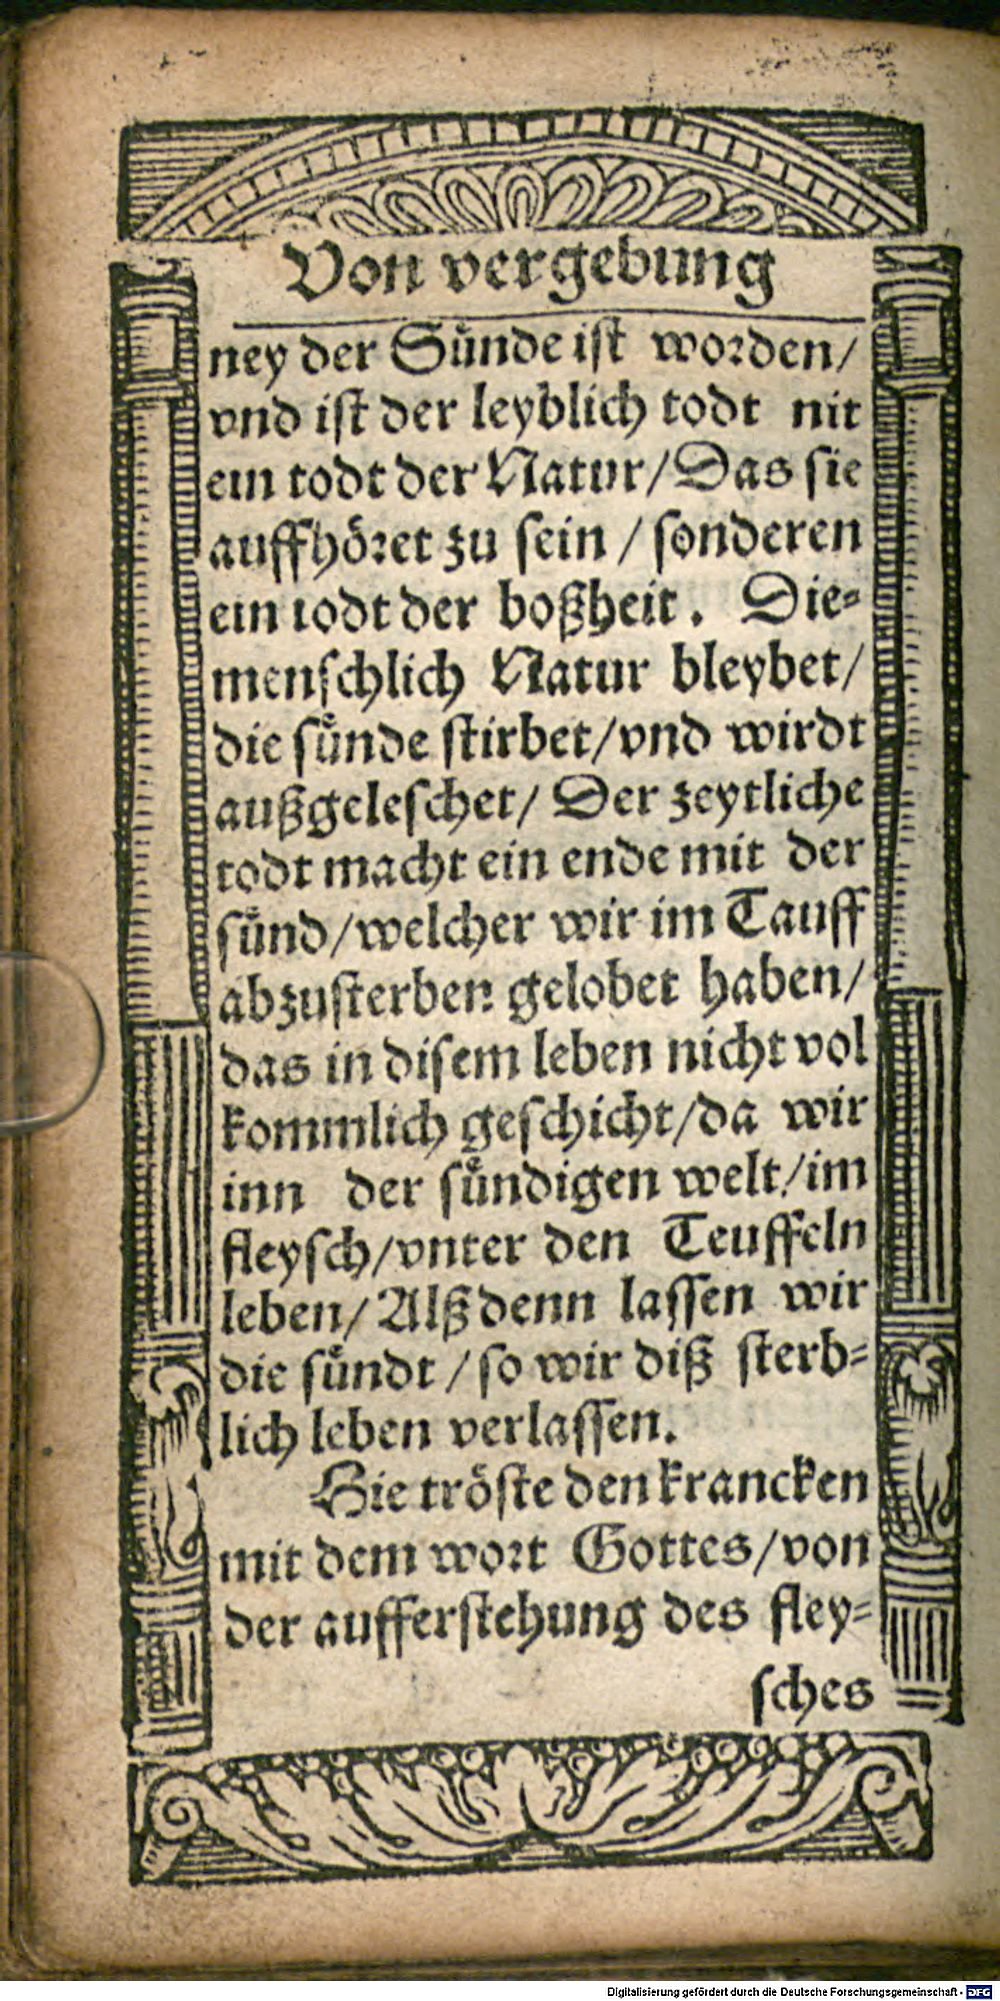 Von vergebung
ney der Sünde ist worden/
vnd ist der leyblich todt nit
ein todt der Natur/ Das sie
auffhöret zu sein / sonderen
ein todt der boßheit. Die-
menschlich Natur bleybet/
die sünde stirbet/ vnd wirdt
außgeleschet/ Der zeytliche
todt macht ein ende mit der
sünd/ welcher wir im Tauff
abzusterben gelobet haben/
das in disem leben nicht vol
kommlich geschicht/ da wir
inn der sündigen welt/ im
fleysch/ vnter den Teuffeln
leben/ Alß denn lassen wir
die sündt / so wir diß sterb-
lich leben verlassen.
Hie tröste den krancken
mit dem wort Gottes/ von
der aufferstehung des fley-
sches
Digitalisierung gefördert durch die Deutsche Forschungsgemeinschaft - DFG